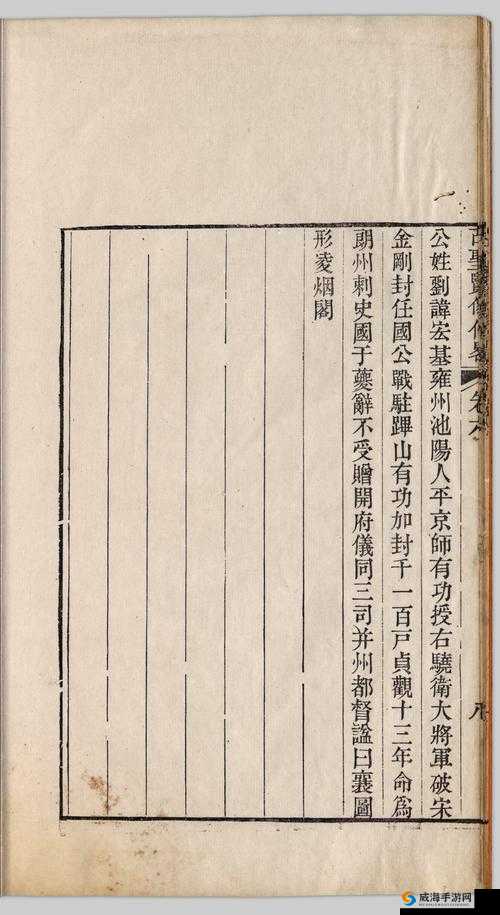 古聖賢像傳畧
卷六
公姓劉諱宏基雍州池陽人平京師有功授右驍衛大將軍破宋
金剛封任國公戰駐蹕山有功加封千一百戸貞觀十三年命爲
朗州刺史國于夔辭不受贈開府儀同三司并州都督諡曰襄圖
形凌烟閣
威海手游网